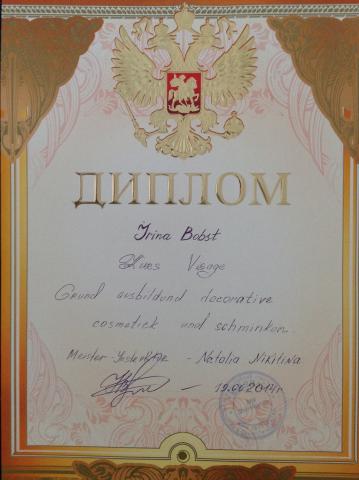 ДИПЛОМ
Irina Bobst
Visage
Grund ausbildund decorative
cosmetick und schminken.
Meister - Natalia Nikitina
- 19.06.2014г